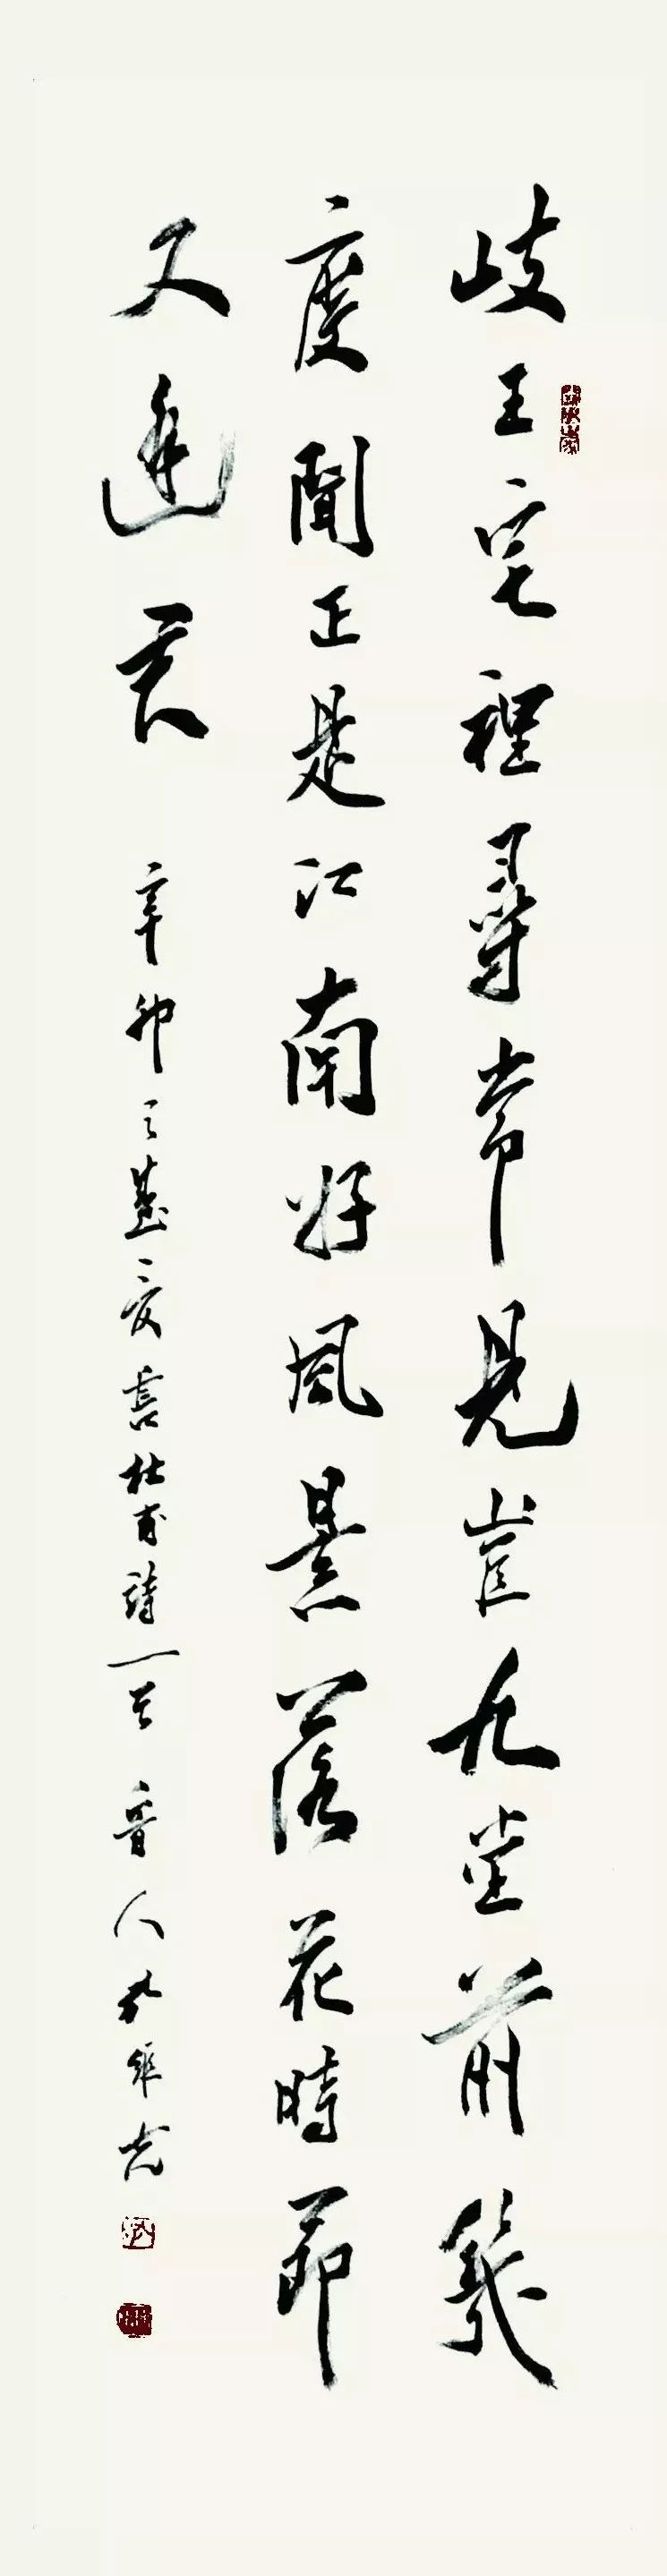 岐王宅裡尋常見崔九堂前幾
度聞正是江南好風景落花時節
又逢君 辛卯之夏書杜甫詩一首 人孔維克